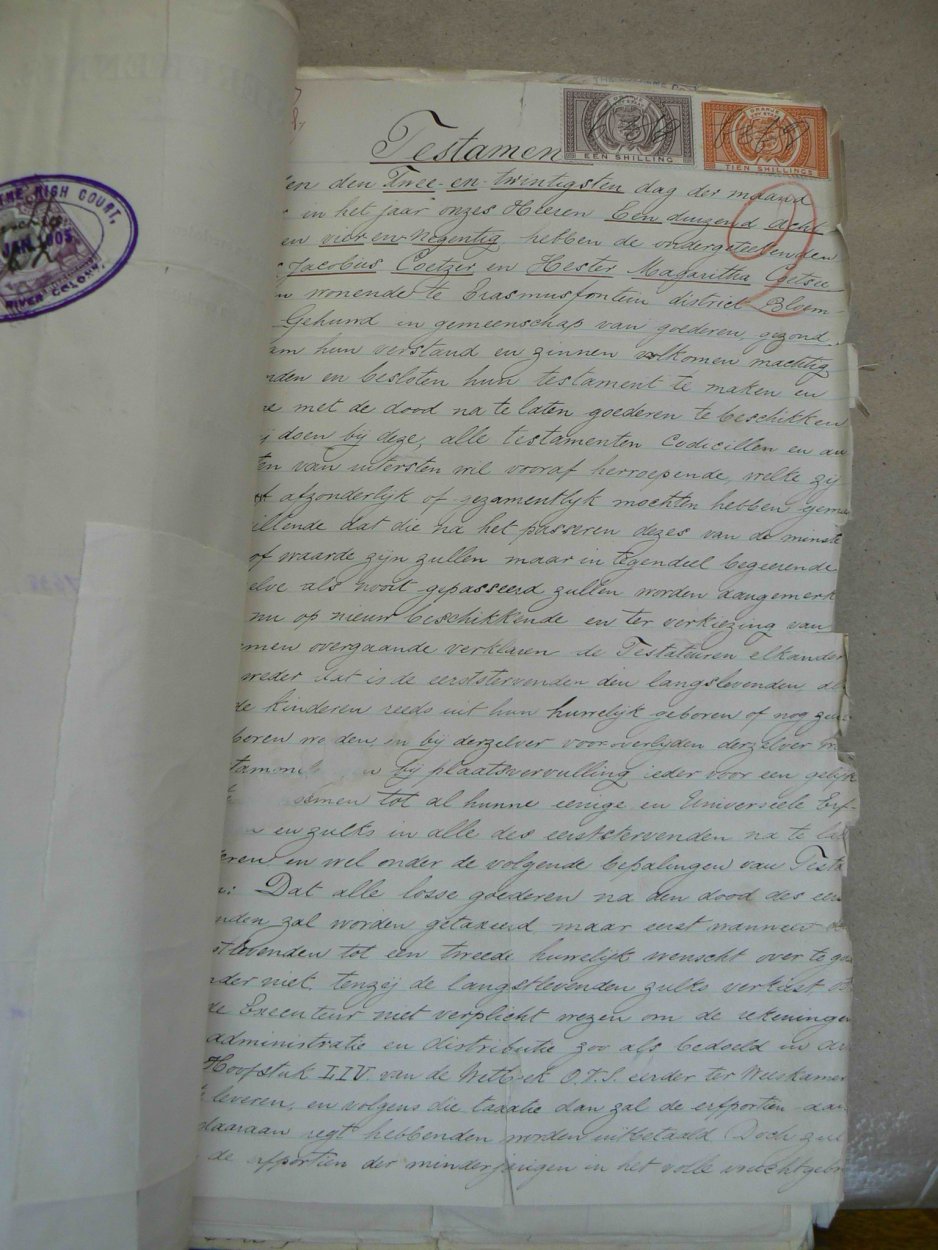 THE HIGH COURT,
JAN. 1905
RIVER COLONY
ORANJE
EEN SHILLING
ORANJE
TIEN SHILLINGS
Testamen
den Twee-en-twintigsten dag der maand
in het jaar onzes Heeren Een duizend Acht
en vier en Negentig hebben de ondergeteekenden
Jacobus Coetzer en Hester Magaritha Coetsee
wonende te Erasmusfontein district Bloem-
Gehuwd in gemeenschap van goederen, gezond
hun verstand en zinnen volkomen machtig
en besloten hun testament te maken en
met de dood na te laten goederen te beschikken
doen bij deze, alle testamenten Codicillen en an
van uitersten wil vooraf herroepende, welke zij
afzonderlijk of gezamentlijk mochten hebben gema
illende dat die na het passeren dezes van de minste
of waarde zijn zullen maar in tegendeel begeerende
elve als nooit gepasseerd zullen worden aangemerk
nu op nieuw beschikkende en ter verkiezing van
men overgaande verklaren de Testateuren elkander
weder dat is de eerststervenden den langslevenden
de kinderen reeds uit hun huwelijk geboren of nog
boren worden, en bij derzelver vooroverlijden derzelver
bij plaatsvervulling ieder voor een gelijk
samen tot al hunne eenige en Universeele Erf-
en zulks in alle des eerststervenden na te
en wel onder de volgende bepalingen van
Dat alle losse goederen na den dood des
zal worden getaxeerd, maar eerst wanneer
stlevenden tot een tweede huwelijk wenscht over te
nder niet, tenzij de langstlevenden zulks verkiest
de Executeur niet verplicht wezen om de rekeningen
administratie en distributie zoo als bedoeld in
Hoofstuk LIV. van de Wetboek O.V.S. eerder ter Weeskamer
leveren, en volgens die taxatie dan zal de erfportien aan
daaraan regt hebbenden worden uitbetaald Doch
de erfportien der minderjarigen in het volle vruchtgebr